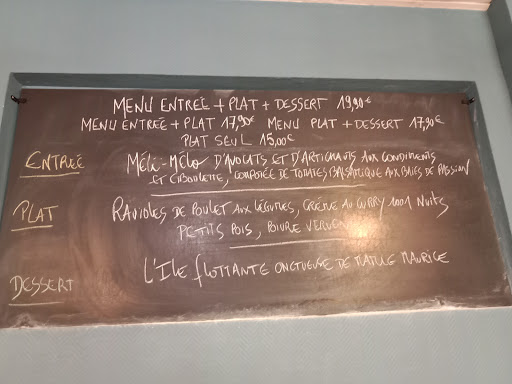 MENU ENTREE + PLAT + DESSERT 19,90€
MENU ENTREE + PLAT 17,90€ MENU PLAT + DESSERT 17,90€
PLAT SEUL 15,00€
ENTREE
Méli-Mélo D'AVOCATS ET D'ARTICHAUTS AUX CONDIMENTS
ET CIBOULETTE, COMPOTÉE DE TOMATES BALSAMIQUE AUX BAIES DE PASSION
PLAT
RAVIOLES DE POULET AUX LÉGUMES, CRÈME AU CURRY 1001 NUITS
PETITS POIS, POIVRE
DESSERT
L'ILE FLOTTANTE ONCTUEUSE DE MAURICE